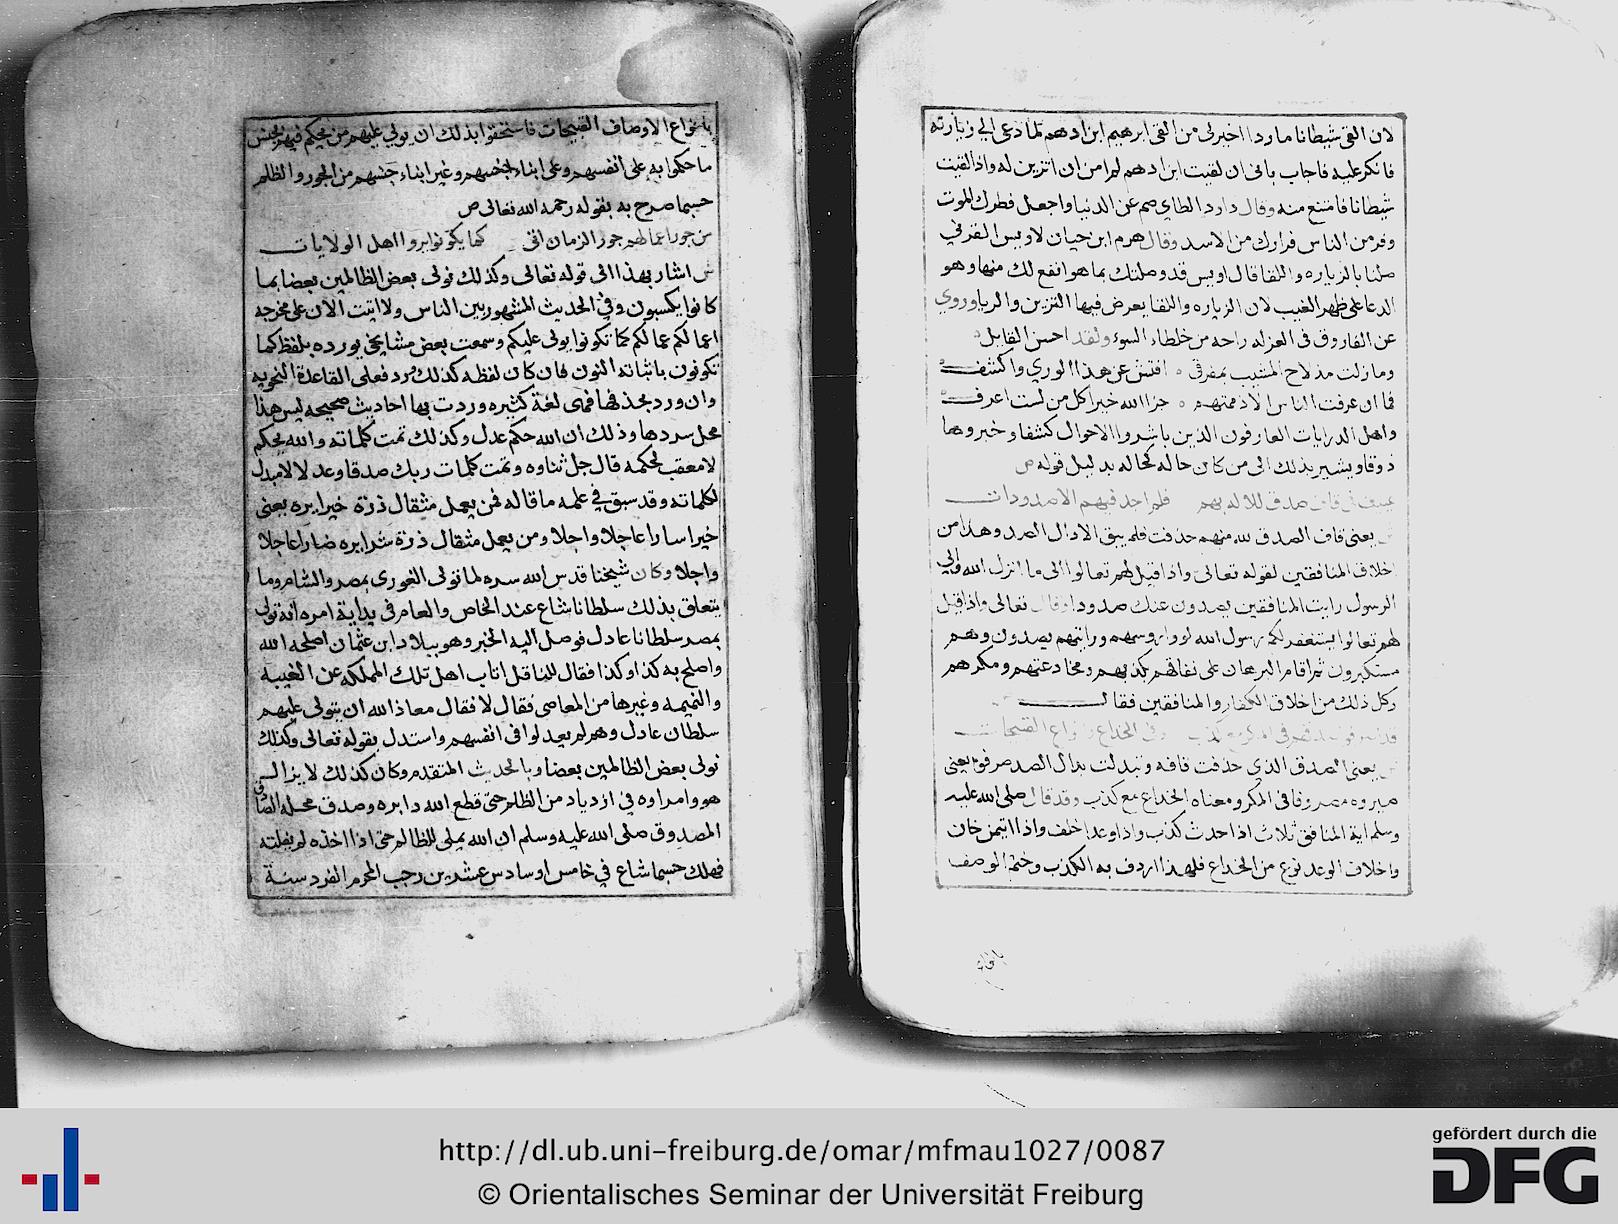 لان القى شيطانا ماردا اخبرلى من القى ابرهيم ابن ادهم لما دعى الي زيارته
فانكر عليه فاجاب بانى ان لقيت ابن ادهم لم امن ان اتزين له واذا لقيت
شيطانا فامتنع منه وقال داود الطاي صم عن الدنيا واجعل فطرك الموت
وفر من الناس فرارك من الاسد وقال هرم ابن حيان لاويس القرني
صلنا بالزياره واللقا قال اويس قد وصلتك بما هو انفع لك منها وهو
الدعا على ظهر الغيب لان الزياره واللقا يعرض فيها التزين والريا وروي
عن الفاروق فى العزله راحه من خلطاء السوء ولقد احسن القايل
وما زلت مذ لاح المشيب بمفرقي افتش عن هذا الوري واكشف
فما ان عرفت الناس الا ذممتهم جزا الله خيرا كل من لست اعرف
واهل الدرايات العارفون الذين باشروا الاحوال كشفا وخبروها
ذوقا ويشير بذلك الى من كان حاله كحاله بدليل قوله ص
قاف صدق للاله بهم فلم اجد فيهم الا صدودات
يعنى قاف الصدق لله منهم حذفت فلم يبق الا دال الصد وهذا من
اخلاق المنافقين لقوله تعالى واذا قيل لهم تعالوا الى ما انزل الله والي
الرسول رايت المنافقين يصدون عنك صدودا وقال تعالى واذا قيل
لهم تعالوا يستغفر لكم رسول الله لووا روسهم ورايتهم يصدون وهم
مستكبرون ثم اقام البرهان على نفاقهم بكذبهم ومخادعتهم ومكرهم
وكل ذلك من اخلاق الكفار والمنافقين فقال
فى المكر مع كذب وفى الخداع وانواع القبيحات
يعنى الصدق الذي حذفت قافه وتبدلت بدال الصد صرفوه يعنى
صيروه مصروفا فى المكر ومعناه الخداع مع كذب وقد قال صلى الله عليه
وسلم اية المنافق ثلاث اذا حدث كذب واذا وعد اخلف واذا اتيمن خان
واخلاف الوعد نوع من الخداع فلهذا اردف به الكذب وختم الوصف
بانواع
بانواع الاوصاف القبيحات فاستحقوا بذلك ان يولي عليهم من يحكم فيهم بجنس
ما حكموا به على انفسهم وعلى ابناء جنسهم وغير ابناء جنسهم من الجور والظلم
حسبما صرح به بقوله رحمه الله تعالى ص
من جور اعمالهم جور الزمان اتى كما يكونوا يروا اهل الولايات
ش اشار بهذا الى قوله تعالى وكذلك نولى بعض الظالمين بعضا بما
كانوا يكسبون وفي الحديث المشهور بين الناس ولا اثبت الان على مخرجه
اعمالكم عمالكم كما تكونوا يولى عليكم وسمعت بعض مشايخي يورده بلفظ كما
تكونون باثباته النون فان كان لفظه كذلك ورد فعلى القاعدة النحويه
وان ورد بحذفها فهى لغة كثيره وردت بها احاديث صحيحه ليس هذا
محل سردها وذلك ان الله حكم عدل وكذلك تمت كلماته والله يحكم
لا معقب لحكمه قال جل ثناوه وتمت كلمات ربك صدقا وعدلا لا مبدل
لكلماته وقد سبق في علمه ما قاله فمن يعمل مثقال ذرة خيرا يره يعنى
خيرا سارا عاجلا واجلا ومن يعمل مثقال ذرة شرا يره ضارا عاجلا
واجلا وكان شيخنا قدس الله سره لما تولى الغورى بمصر والشام وما
يتعلق بذلك سلطانا شاع عند الخاص والعام فى بداية امره انه تولى
بمصر سلطانا عادل فوصل اليه الخبر وهو ببلاد ابن عثمان اصلحه الله
واصلح به كذا وكذا فقال للناقل اتاب اهل تلك المملكه عن الغيبة
والنميمه وغيرها من المعاصى فقال لا فقال معاذ الله ان يتولى عليهم
سلطان عادل وهم لم يعدلوا فى انفسهم واستدل بقوله تعالى وكذلك
نولى بعض الظالمين بعضا وبالحديث المتقدم وكان كذلك لا يزال
هو وامراوه في ازدياد من الظلم حتى قطع الله دابره وصدق محله الصادق
المصدوق صلى الله عليه وسلم ان الله يملى للظالم حتى اذا اخذه لم يفلته
فهلك حسبما شاع في خامس او سادس عشرين رجب المحرم الفرد سنة
http://dl.ub.uni-freiburg.de/omar/mfmau1027/0087
© Orientalisches Seminar der Universität Freiburg
gefördert durch die
DFG